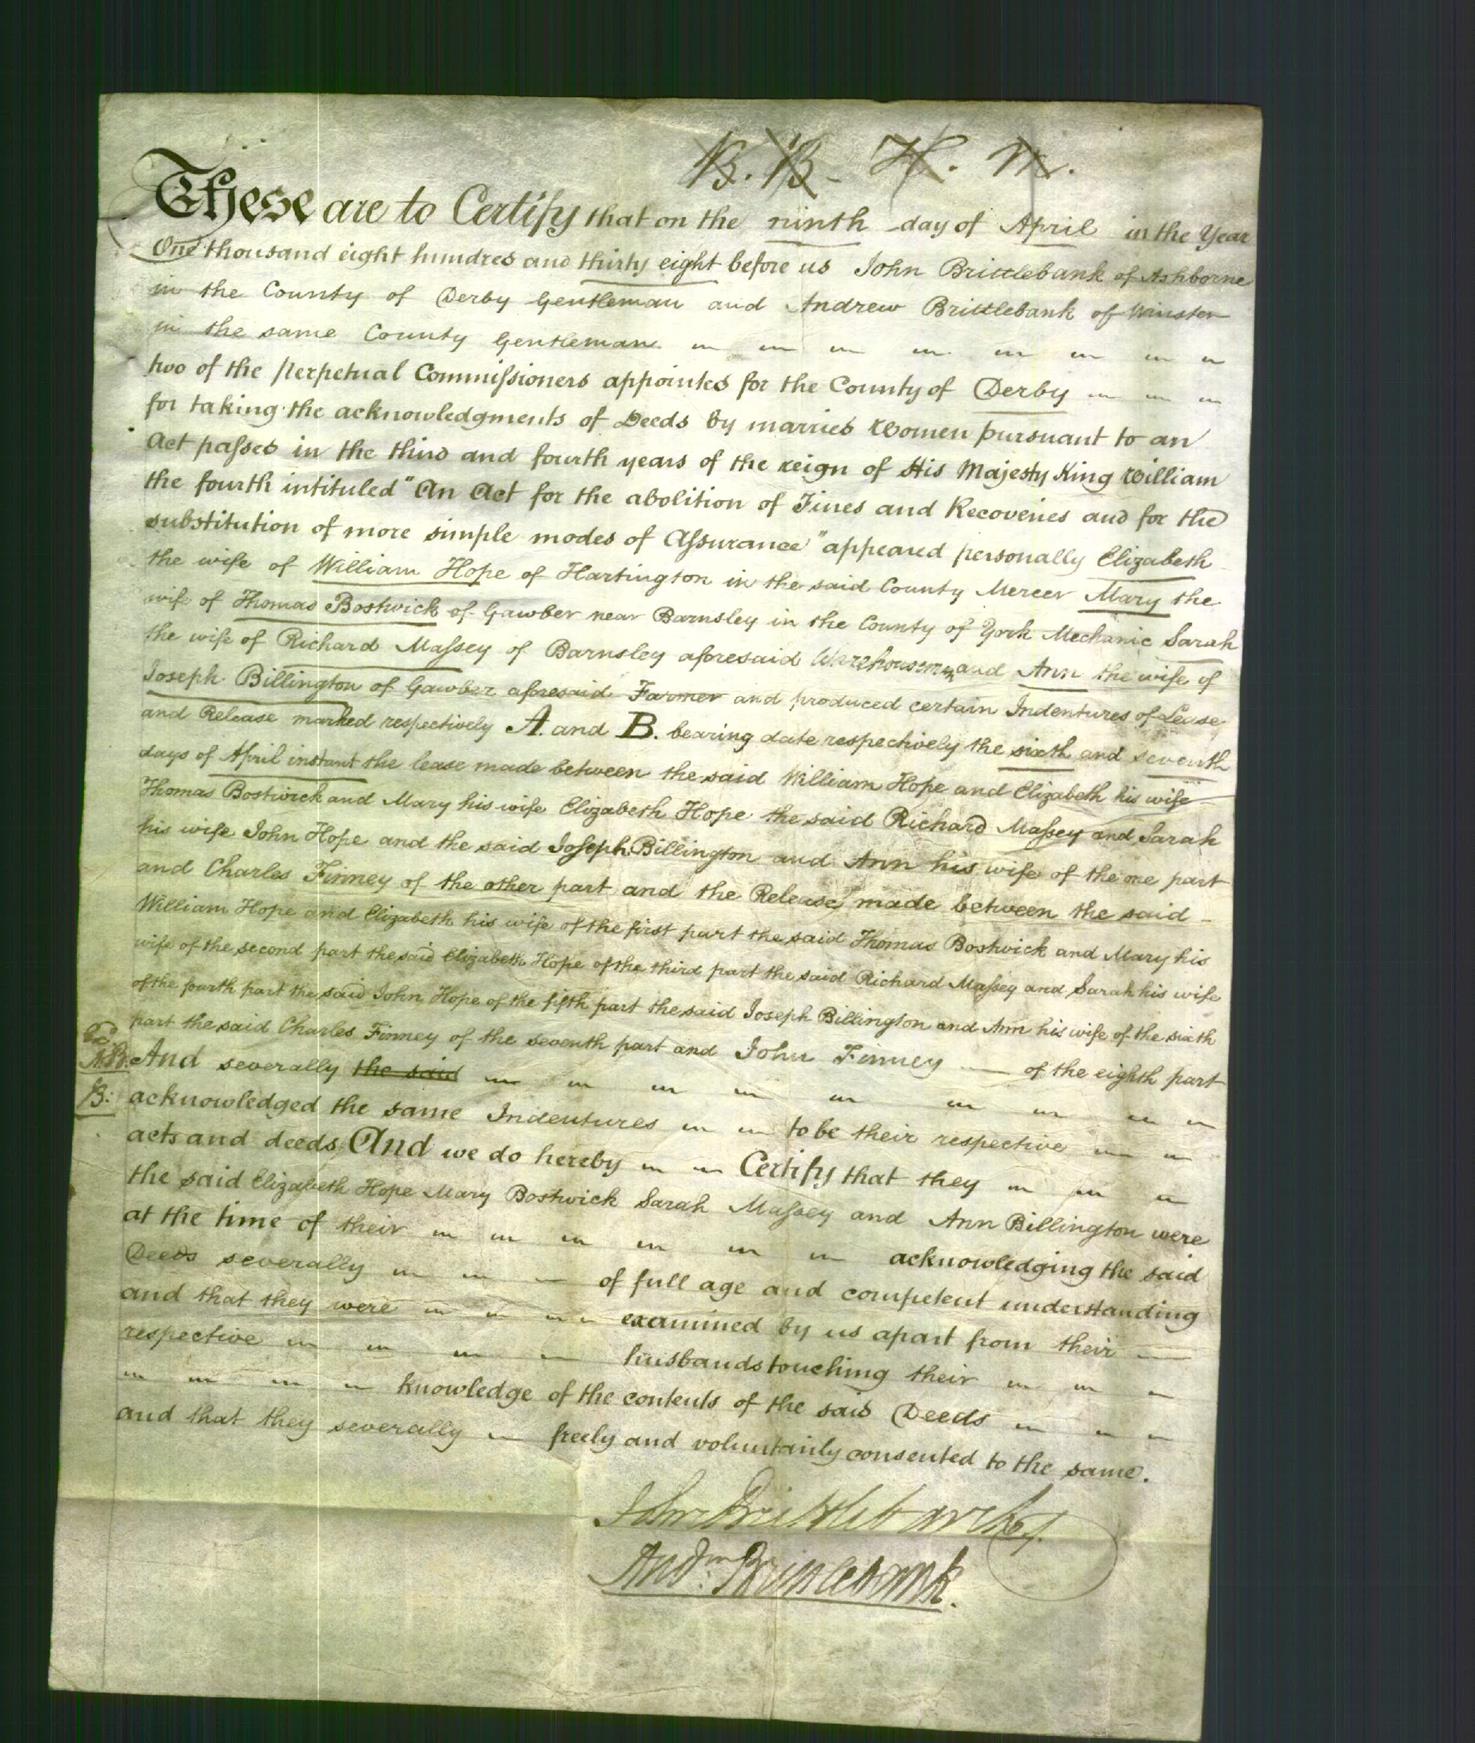 B. B. H. M.
These are to Certify that on the ninth day of April in the Year
One thousand eight hundred and thirty eight before us John Brittlebank of Ashborne
in the County of Derby Gentleman and Andrew Brittlebank of Winster
in the same County Gentleman
two of the Perpetual Commissioners appointed for the County of Derby
for taking the acknowledgments of Deeds by married Women pursuant to an
Act passed in the third and fourth years of the reign of His Majesty King William
the fourth intituled "An Act for the abolition of Fines and Recoveries and for the
substitution of more simple modes of Assurance" appeared personally Elizabeth
the wife of William Hope of Hartington in the said County Mercer Mary the
wife of Thomas Bostwick of Gawber near Barnsley in the County of York Mechanic Sarah
the wife of Richard Massey of Barnsley aforesaid Warehouseman and Ann the wife of
Joseph Billington of Gawber aforesaid Farmer and produced certain Indentures of Lease
and Release marked respectively A. and B. bearing date respectively the sixth and seventh
days of April instant the lease made between the said William Hope and Elizabeth his wife
Thomas Bostwick and Mary his wife Elizabeth Hope the said Richard Massey and Sarah
his wife John Hope and the said Joseph Billington and Ann his wife of the one part
and Charles Finney of the other part and the Release made between the said
William Hope and Elizabeth his wife of the first part the said Thomas Bostwick and Mary his
wife of the second part the said Elizabeth Hope of the third part the said Richard Massey and Sarah his wife
of the fourth part the said John Hope of the fifth part the said Joseph Billington and Ann his wife of the sixth
part the said Charles Finney of the seventh part and John Finney of the eighth part
And severally the said
acknowledged the same Indentures to be their respective
acts and deeds And we do hereby Certify that they
the said Elizabeth Hope Mary Bostwick Sarah Massey and Ann Billington were
at the time of their acknowledging the said
Deeds severally of full age and competent understanding
and that they were examined by us apart from their
respective husbands touching their
knowledge of the contents of the said Deeds
and that they severally freely and voluntarily consented to the same.
John Brittlebank
Andw. Brittlebank.